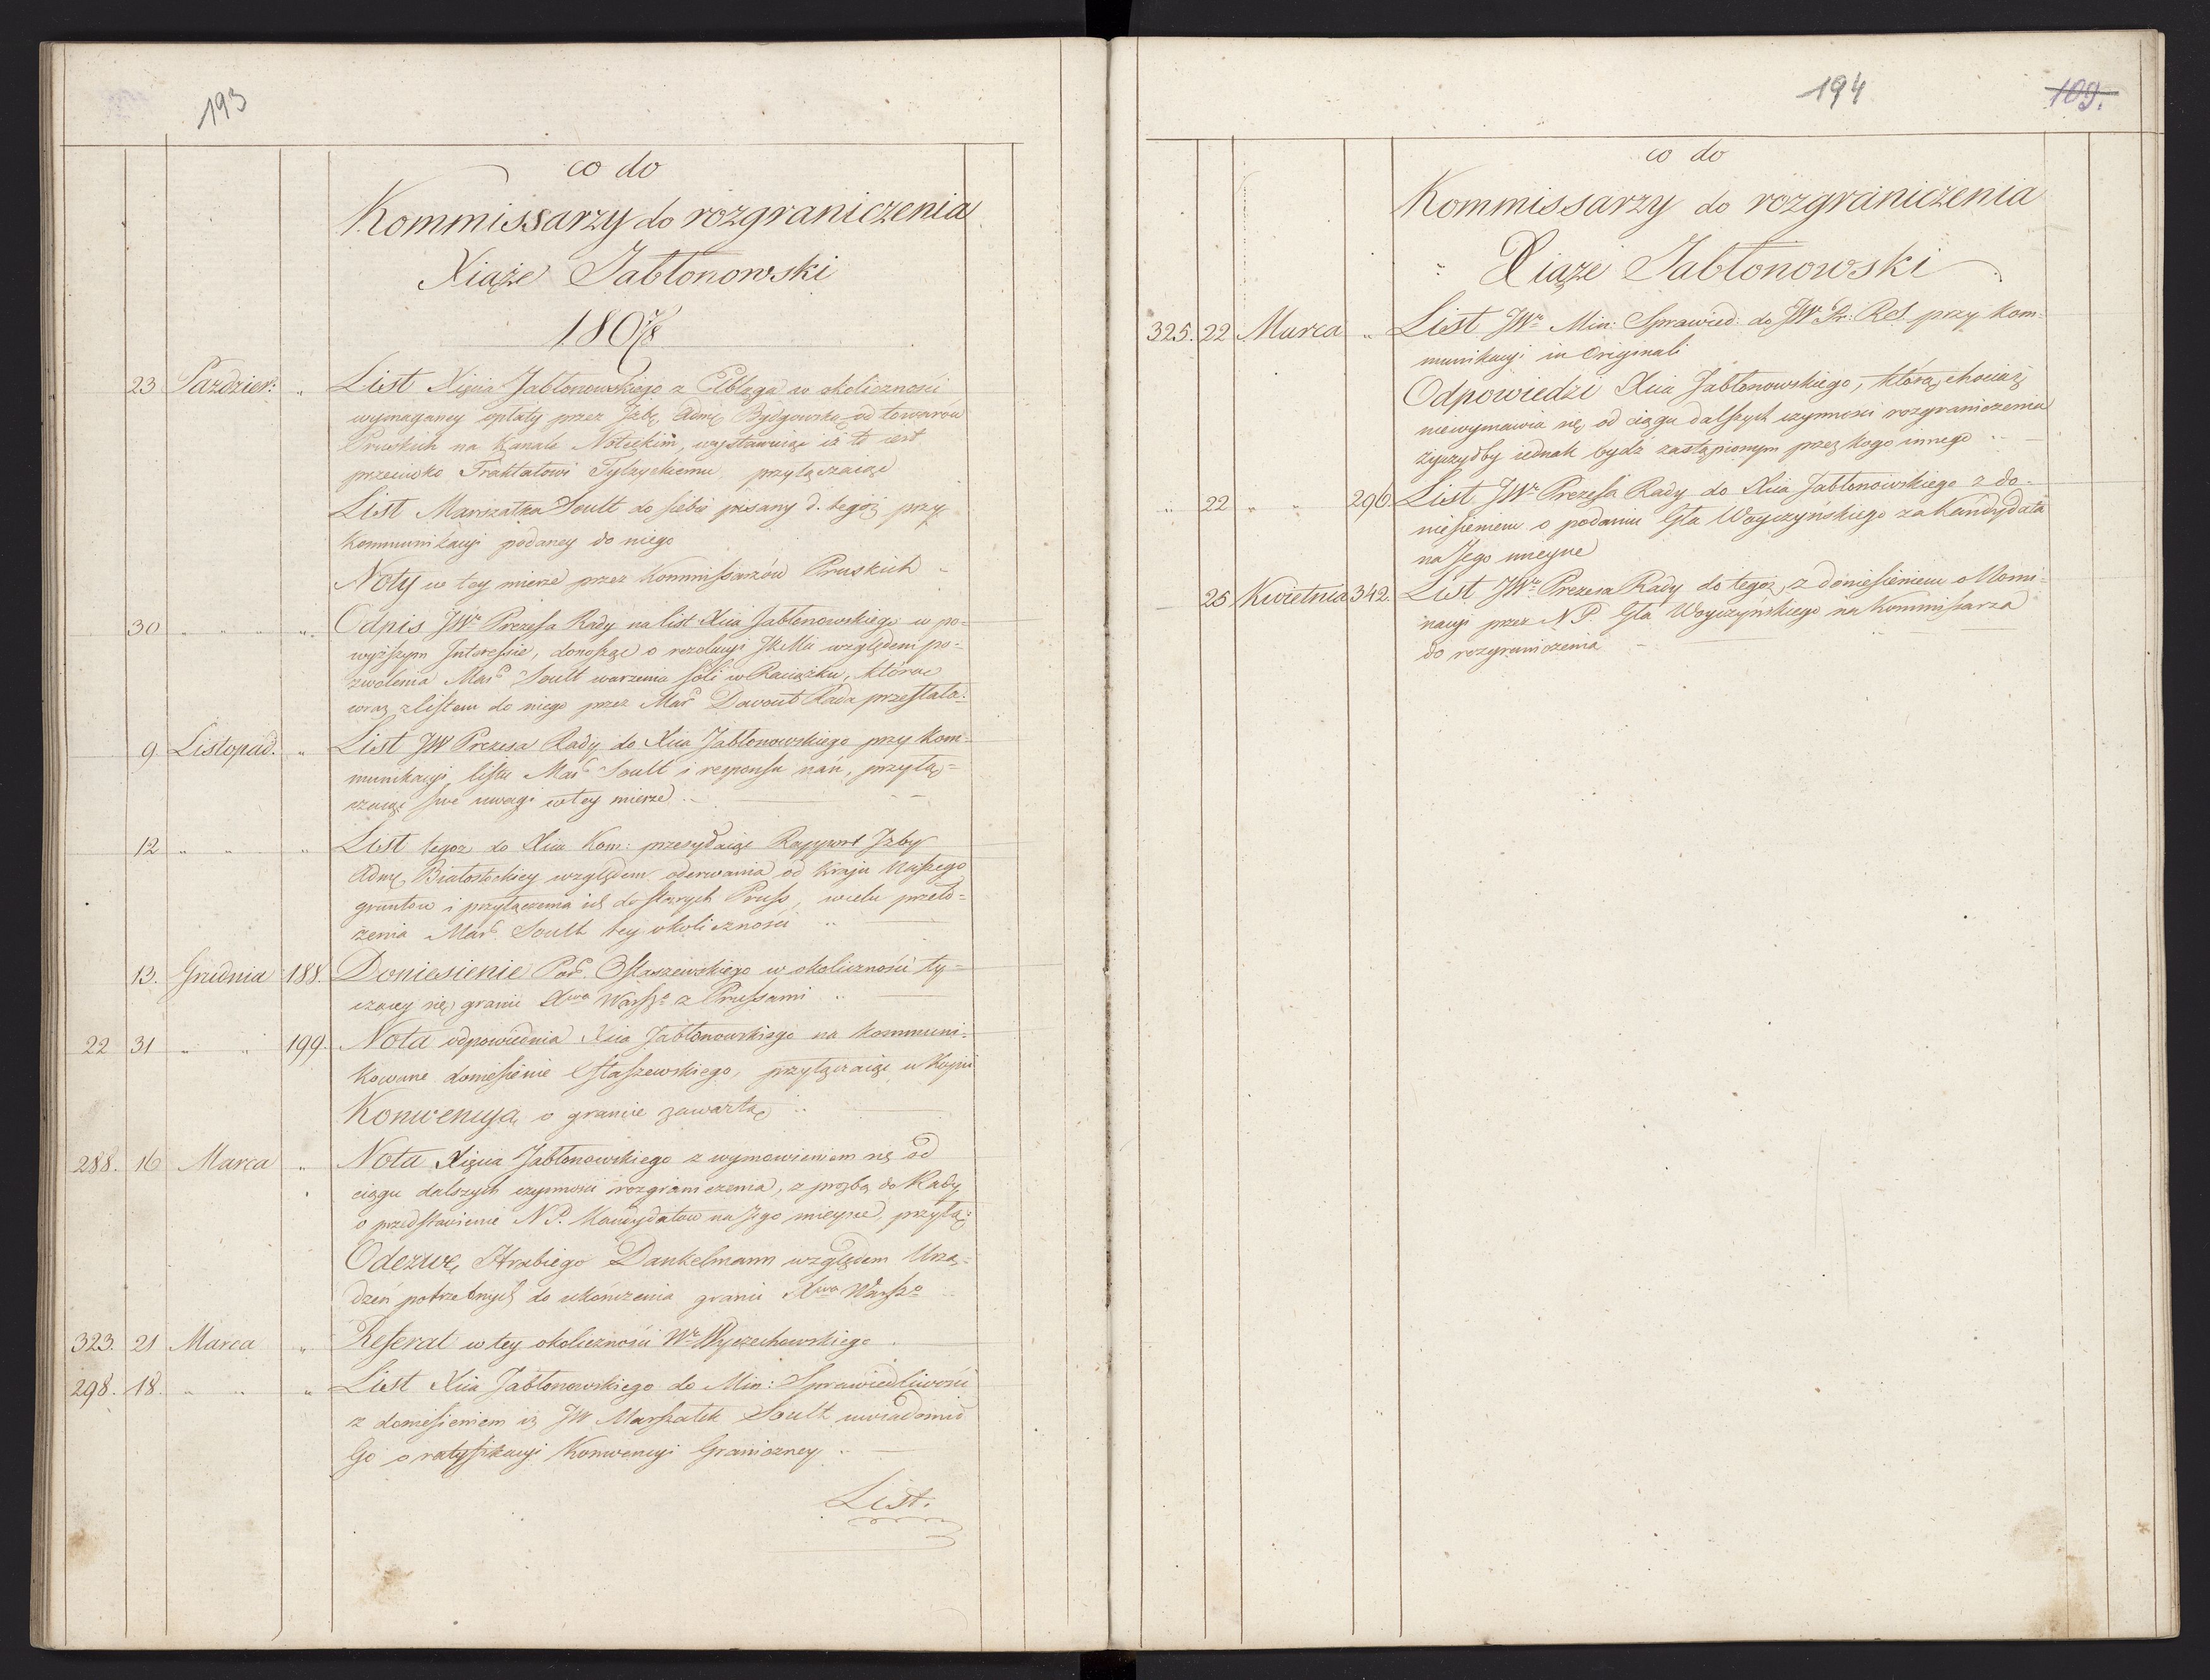 193
co do
Kommissarzy do rozgraniczenia
Xiąże Jabłonowski
1807/8
23 Pazdzier: „ List Xięcia Jabłonowskiego z Elbląga w okoliczności
wymaganey opłaty przez Izbę Admę Bydgowską od towarów
Pruskich na Kanale Noteckim, wystawuiąc iż to iest
przeciwko Traktatowi Tylzyckiemu, przyłączaiąc
List Marszałka Soult do siebie pisany d. tegoż przy
Kommunikacyi podaney do niego
Noty w tey mierze przez Kommissarzów Pruskich
30 „ „ „ Odpis JWo Prezesa Rady na list Xcia Jabłonowskiego w po=
wyższym Interessie, donosząc o rezolucyi JKMci względem po=
zwolenia Mar: Soult warzenia soli w Raciążku, które
wraz z listem do niego przez Mar: Davout Rada przesłała.
9 Listopad. „ List JW Prezesa Rady do Xcia Jabłonowskiego przy Kom=
munikacyi listu Mar: Soult i responsu nań, przyłą=
czaiąc swe uwagi w tey mierze
12 „ „ „ List tegoż do Xcia Kom: przesyłaiąc Rapport Izby
Admey Białostockiey względem oderwania od Kraju Naszego
gruntów i przyłączenia ich do starych Pruss, wcelu przeło=
żenia Mar: Soult tey okoliczności
13. Grudnia 188. Doniesienie Pod: Ostaszewskiego w okoliczności ty=
czącey się granic Xwa Warszo z Prussami
22 31 „ „ 199. Nota odpowiednia Xcia Jabłonowskiego na Kommuni=
kowane doniesienie Ostaszewskiego, przyłączaiąc w Kopii
Konwencyą o granice zawartą
288. 16 Marca „ Nota Xięcia Jabłonowskiego z wymowieniem się od
ciągu dalszych czynności rozgraniczenia, z prozbą do Rady
o przedstawienie N.P. Kandydatów na Jego mieysce, przyłą:
Odezwę Hrabiego Dankelmann względem Urzą=
dzeń potrzebnych do ukończenia granic Xwa Warszo
323. 21 Marca „ Referat w tey okoliczności Wo Wyczechowskiego
298. 18. „ „ „ List Xcia Jabłonowskiego do Min: Sprawiedliwości
z doniesieniem iż JW Marszałek Soult uwiadomił
Go o ratyfikacyi Konwencyi Graniczney
List.
194
109.
co do
Kommissarzy do rozgraniczenia
Xiąże Jabłonowski
325. 22 Marca „ List JWo Min: Sprawied: do JW Pr: RS przy kom=
munikacyi in Originali
Odpowiedzi Xcia Jabłonowskiego, którą, chociaż
niewymawia się od ciągu dalszych czynności rozgraniczenia
życzyłby iednak bydź zastąpionym przez kogo innego
„ 22 „ „ 296. List JWo Prezesa Rady do Xcia Jabłonowskiego z do=
niesieniem o podaniu Gła Woyczyńskiego za Kandydata
na Jego mieysce
25 Kwietnia 342. List JWo Prezesa Rady do tegoż, z doniesieniem o Nomi=
nacyi przez N.P. Gła Woyczyńskiego na Kommissarza
do rozgraniczenia